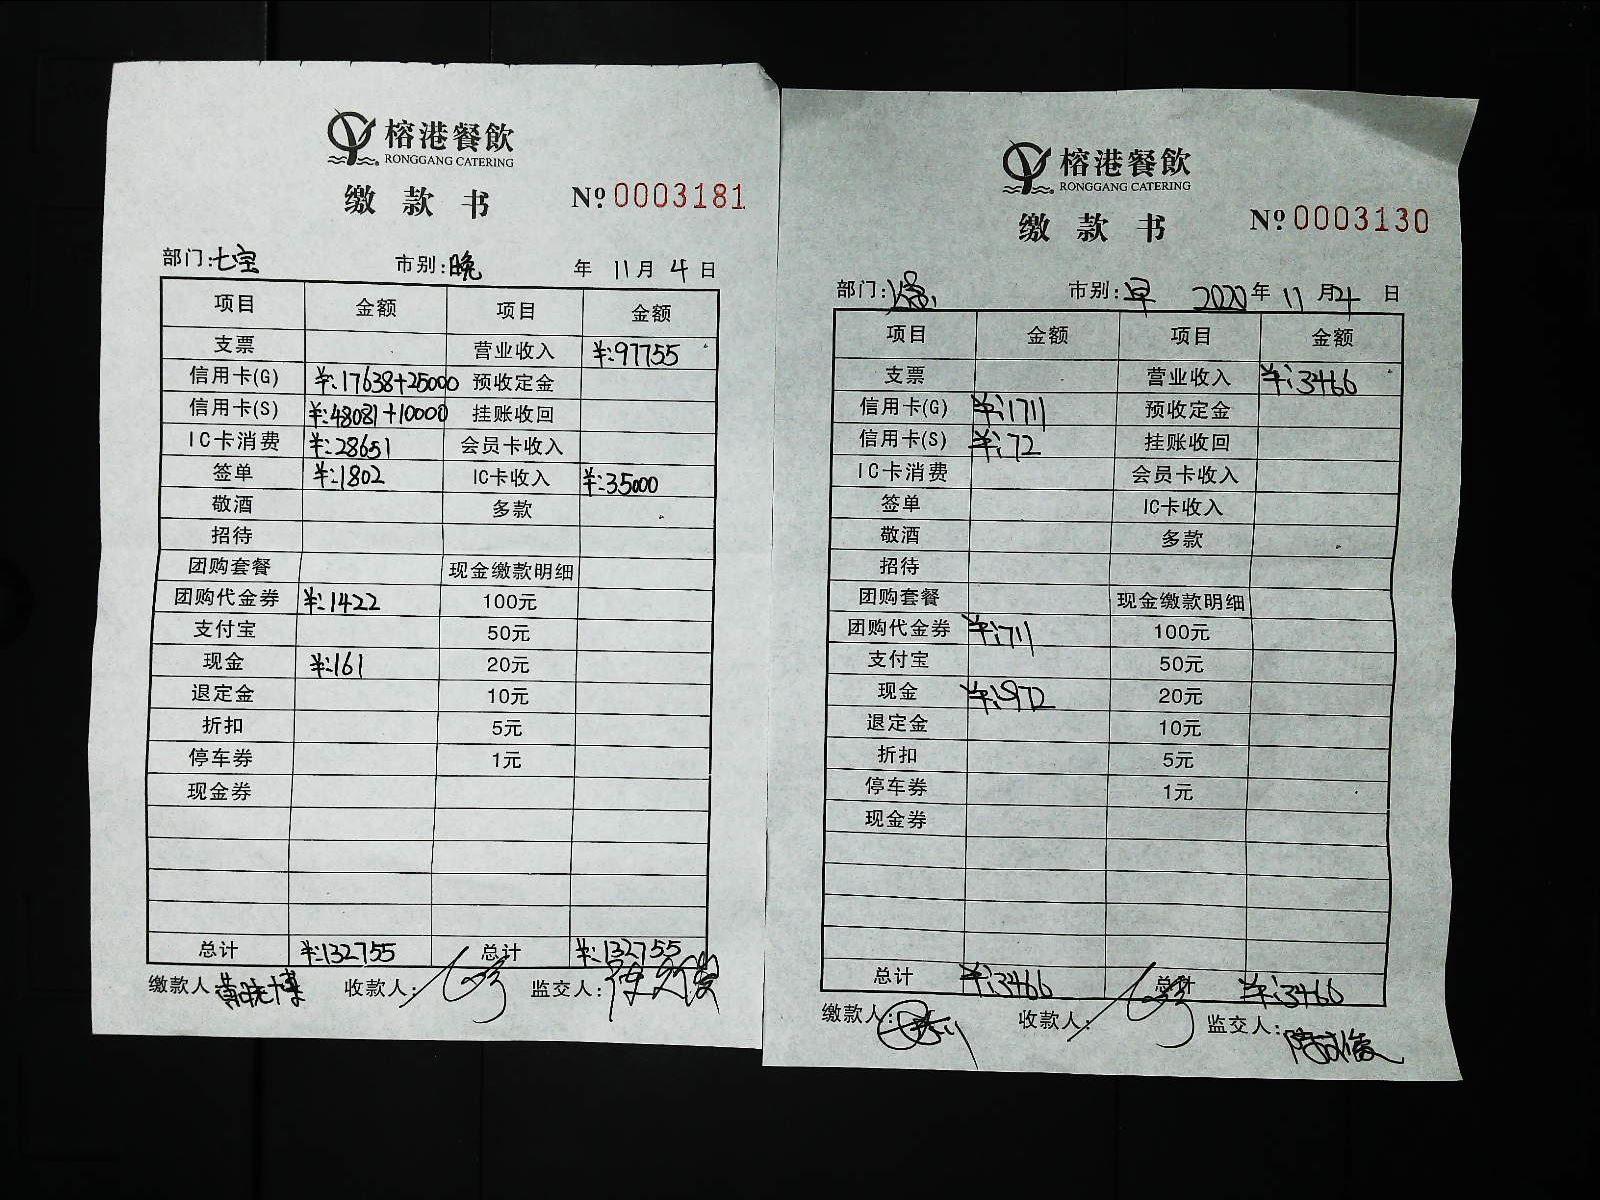 榕港餐飲
RONGGANG CATERING
缴款书 № 0003181
部门:七宝 市别:晚 年 11月 4日
项目 金额 项目 金额
支票 营业收入 ¥:97755
信用卡(G) ¥:17638+25000 预收定金
信用卡(S) ¥:48081+10000 挂账收回
IC卡消费 ¥:28651 会员卡收入
签单 ¥:1802 IC卡收入 ¥:35000
敬酒 多款
招待
团购套餐 现金缴款明细
团购代金券 ¥:1422 100元
支付宝 50元
现金 ¥:161 20元
退定金 10元
折扣 5元
停车券 1元
现金券
总计 ¥:132755 总计 ¥:132755
缴款人 黄晓博 收款人: 监交人:
榕港餐飲
RONGGANG CATERING
缴款书 № 0003130
部门: 市别:早 2020年 11月4日
项目 金额 项目 金额
支票 营业收入 ¥:3466
信用卡(G) ¥:1711 预收定金
信用卡(S) ¥:72 挂账收回
IC卡消费 会员卡收入
签单 IC卡收入
敬酒 多款
招待
团购套餐 现金缴款明细
团购代金券 ¥:711 100元
支付宝 50元
现金 ¥:972 20元
退定金 10元
折扣 5元
停车券 1元
现金券
总计 ¥:3466 总计 ¥:3466
缴款人: 收款人: 监交人: